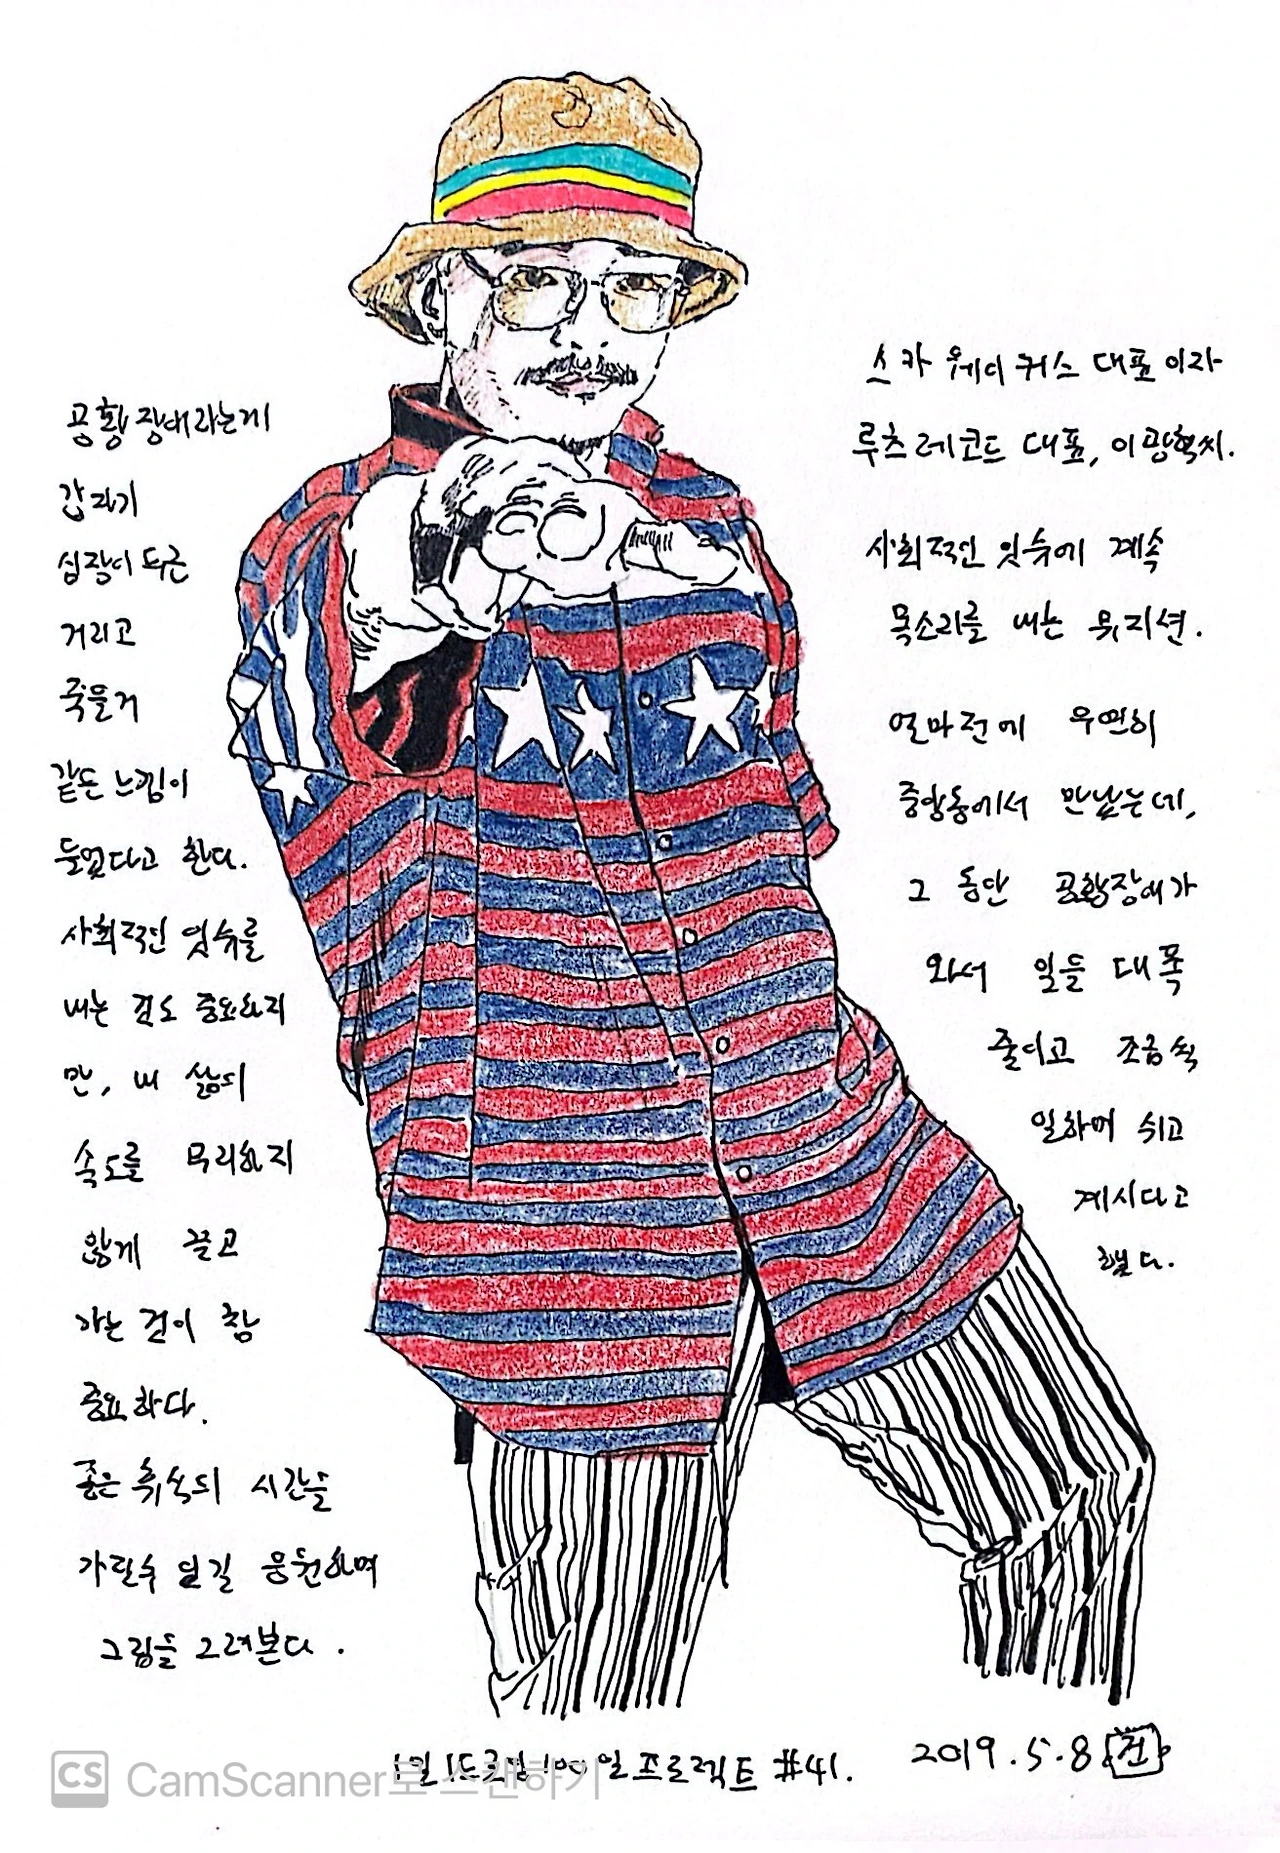 스카 웨이커스 대표이자
루츠레코드 대표, 이광혁씨.
사회적인 잇슈에 계속
목소리를 내는 뮤지션.
얼마전에 우연히
중앙동에서 만났는데,
그 동안 공황장애가
와서 일들 대폭
줄이고 조금씩
일하며 쉬고
계시다고
했다.
공황장애라는게
갑자기
심장이 두근
거리고
죽을거
같은 느낌이
들었다고 한다.
사회적인 잇슈를
내는 것도 중요하지
만, 내 삶의
속도를 무리하지
않게 끌고
가는 것이 참
중요하다.
좋은 휴식의 시간들
가질수 있길 응원하며
그림을 그려본다.
1일 1드로잉 100일 프로젝트 #41.
2019.5.8 건
CS CamScanner로 스캔하기